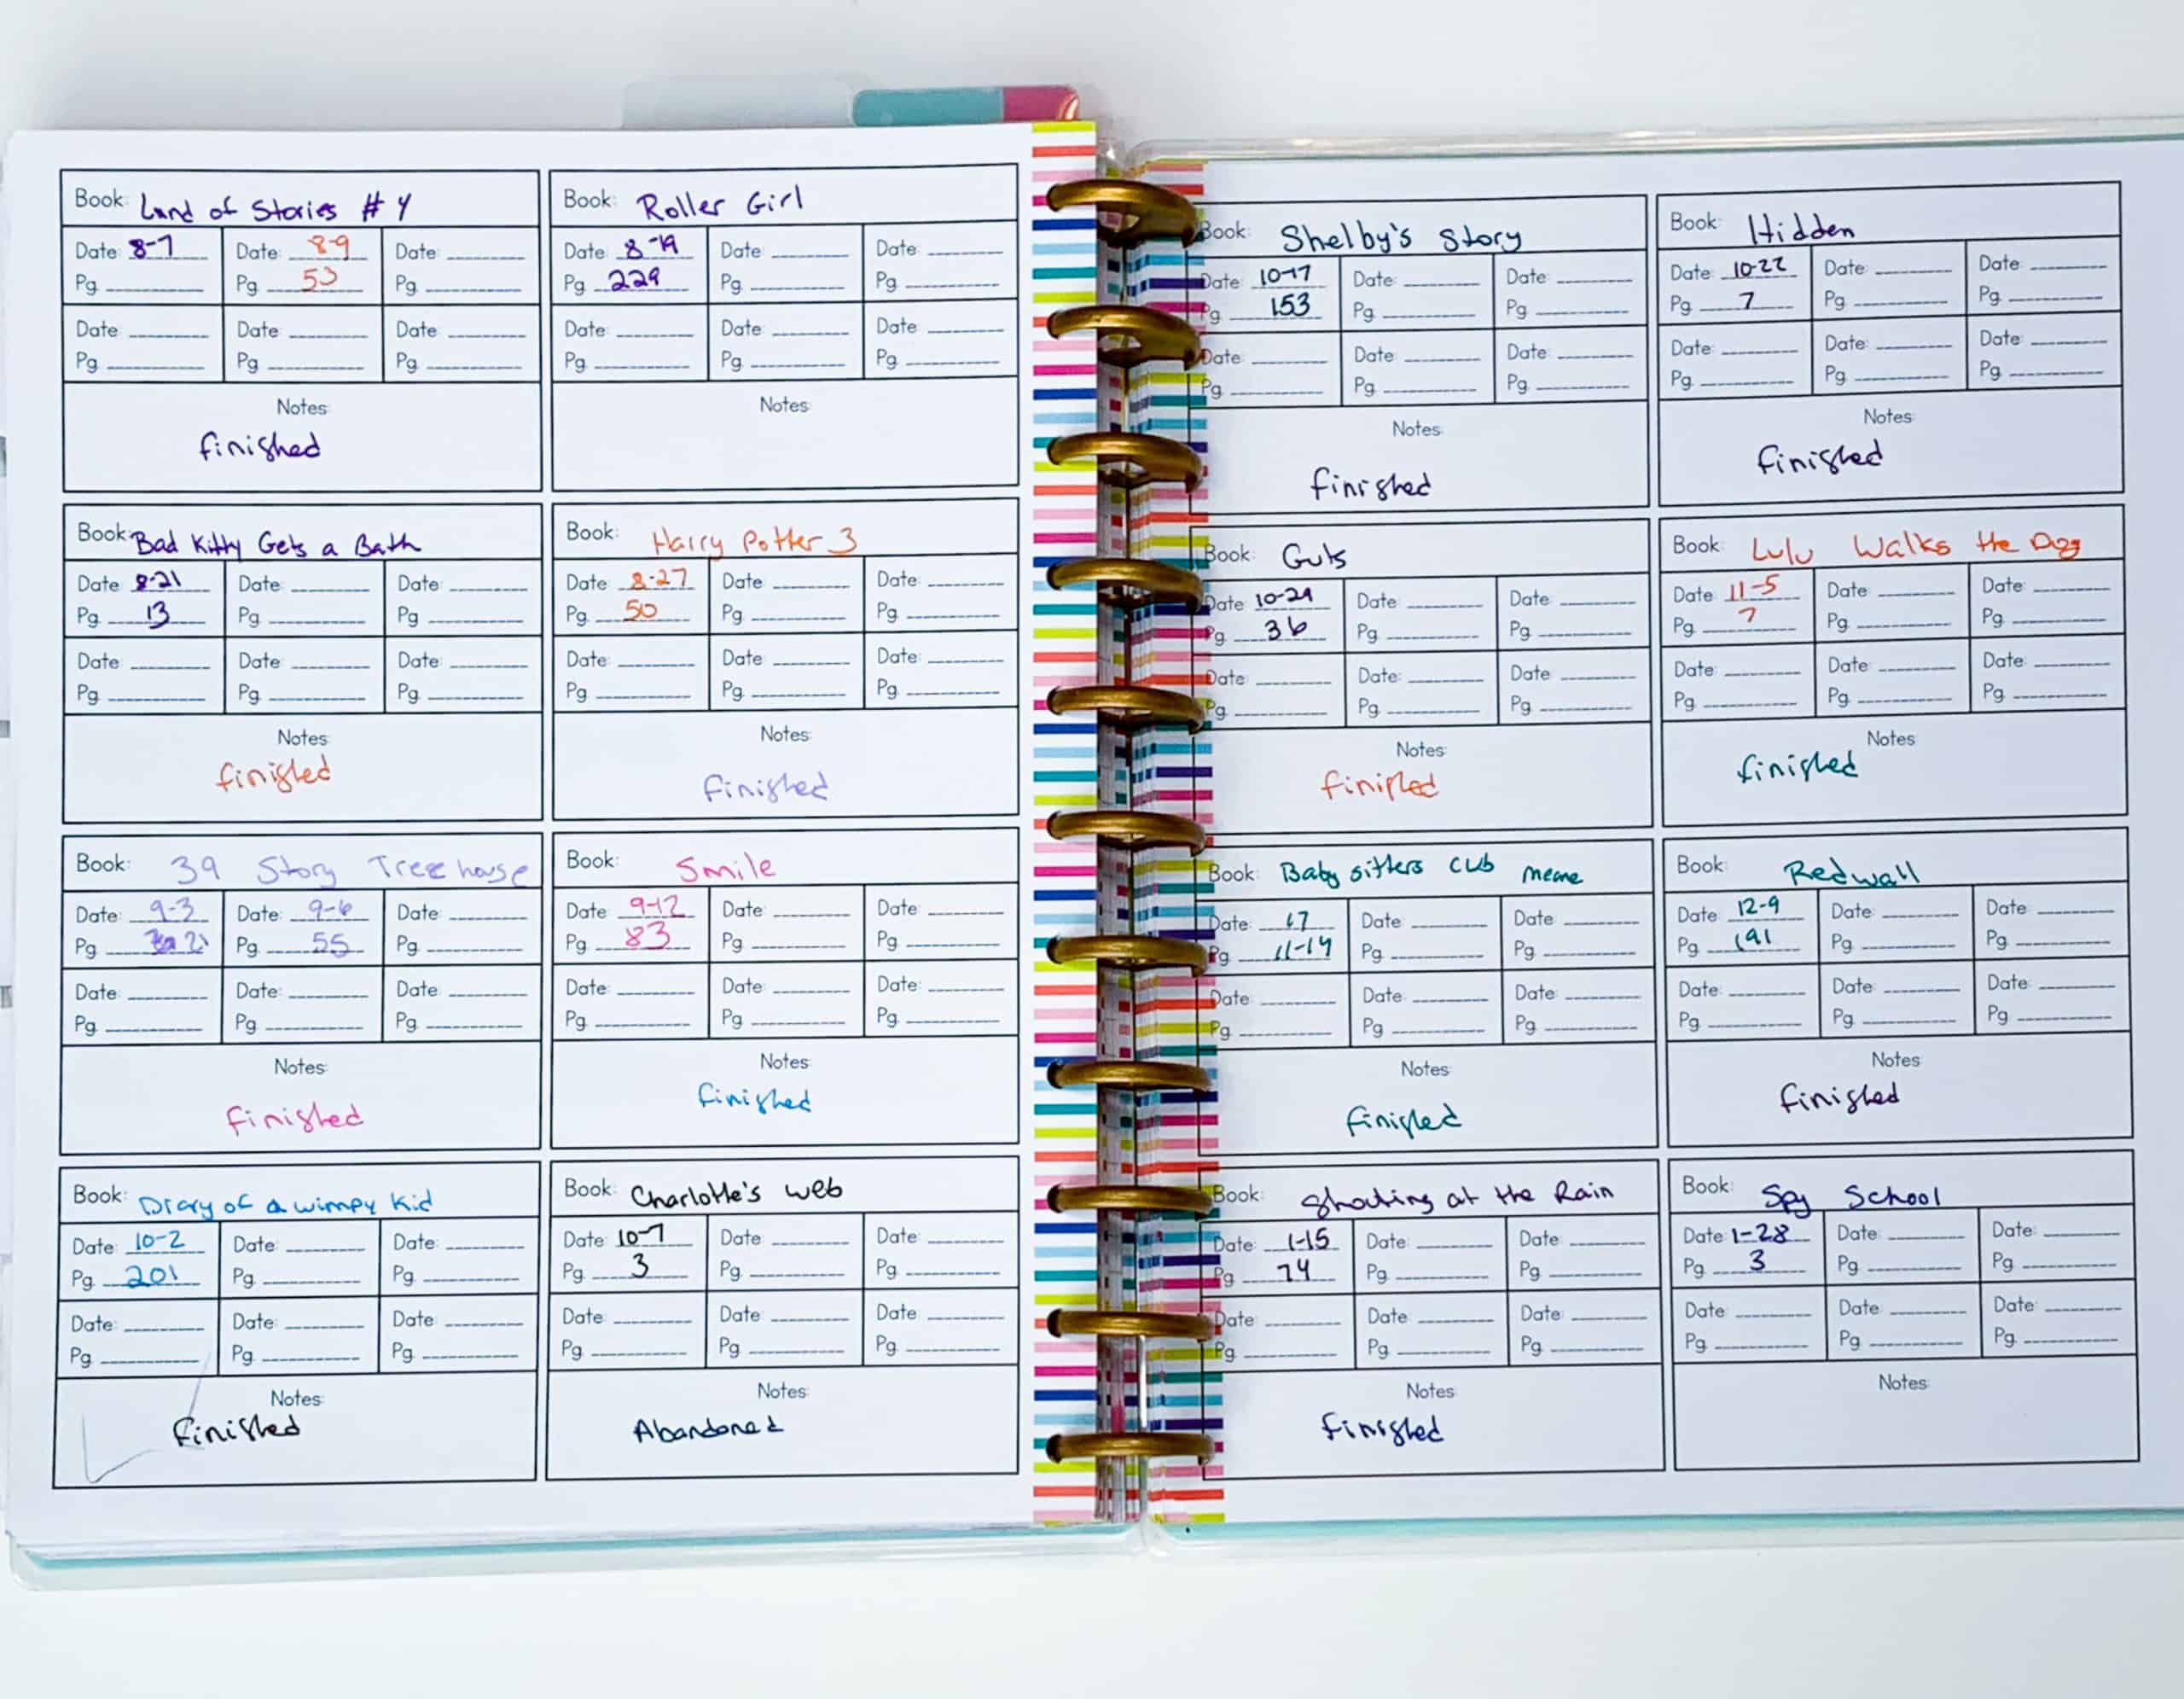 Book: Land of Stories #4
Date: 8-7 Date: 8-9 Date:
Pg. Pg. 53 Pg.
Date: Date: Date:
Pg. Pg. Pg.
Notes:
finished
Book: Roller Girl
Date: 8-19 Date: Date:
Pg. 229 Pg. Pg.
Date: Date: Date:
Pg. Pg. Pg.
Notes:
Book: Bad Kitty Gets a Bath
Date: 8-21 Date: Date:
Pg. 13 Pg. Pg.
Date: Date: Date:
Pg. Pg. Pg.
Notes:
finished
Book: Harry Potter 3
Date: 8-27 Date: Date:
Pg. 50 Pg. Pg.
Date: Date: Date:
Pg. Pg. Pg.
Notes:
finished
Book: 39 Story Treehouse
Date: 9-3 Date: 9-6 Date:
Pg. 21 Pg. 55 Pg.
Date: Date: Date:
Pg. Pg. Pg.
Notes:
finished
Book: Smile
Date: 9-12 Date: Date:
Pg. 83 Pg. Pg.
Date: Date: Date:
Pg. Pg. Pg.
Notes:
finished
Book: Diary of a wimpy Kid
Date: 10-2 Date: Date:
Pg. 201 Pg. Pg.
Date: Date: Date:
Pg. Pg. Pg.
Notes:
finished
Book: Charlotte's web
Date: 10-7 Date: Date:
Pg. 3 Pg. Pg.
Date: Date: Date:
Pg. Pg. Pg.
Notes:
Abandoned
Book: Shelby's Story
Date: 10-17 Date: Date:
Pg. 153 Pg. Pg.
Date: Date: Date:
Pg. Pg. Pg.
Notes:
finished
Book: Hidden
Date: 10-22 Date: Date:
Pg. 7 Pg. Pg.
Date: Date: Date:
Pg. Pg. Pg.
Notes:
finished
Book: Guts
Date: 10-29 Date: Date:
Pg. 36 Pg. Pg.
Date: Date: Date:
Pg. Pg. Pg.
Notes:
finished
Book: Lulu Walks the Dog
Date: 11-5 Date: Date:
Pg. 7 Pg. Pg.
Date: Date: Date:
Pg. Pg. Pg.
Notes:
finished
Book: Baby sitters club
Date: 67 Date: Date:
Pg. 11-14 Pg. Pg.
Date: Date: Date:
Pg. Pg. Pg.
Notes:
finished
Book: Redwall
Date: 12-9 Date: Date:
Pg. 191 Pg. Pg.
Date: Date: Date:
Pg. Pg. Pg.
Notes:
finished
Book: Shouting at the Rain
Date: 1-15 Date: Date:
Pg. 74 Pg. Pg.
Date: Date: Date:
Pg. Pg. Pg.
Notes:
finished
Book: Spy School
Date: 1-28 Date: Date:
Pg. 3 Pg. Pg.
Date: Date: Date:
Pg. Pg. Pg.
Notes: